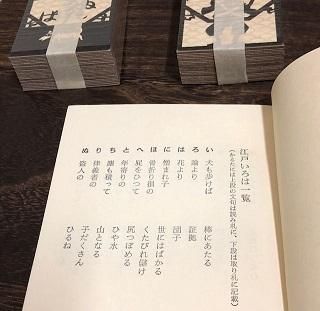 江戸いろは一覧
(かるたには上段の文句は読み札に、下段は取り札に記載)
い 犬も歩けば 棒にあたる
ろ 論より 証拠
は 花より 団子
に 憎まれ子 世にはばかる
ほ 骨折り損の くたびれ儲け
へ 屁をひつて 尻つぼめる
と 年寄りの ひや水
ち 塵も積って 山となる
り 律義者の 子だくさん
ぬ 盗人の ひるね